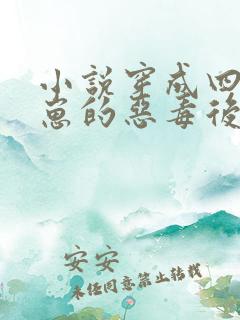 小說穿成四
崽的惡毒後
安安
未经同意禁止转载